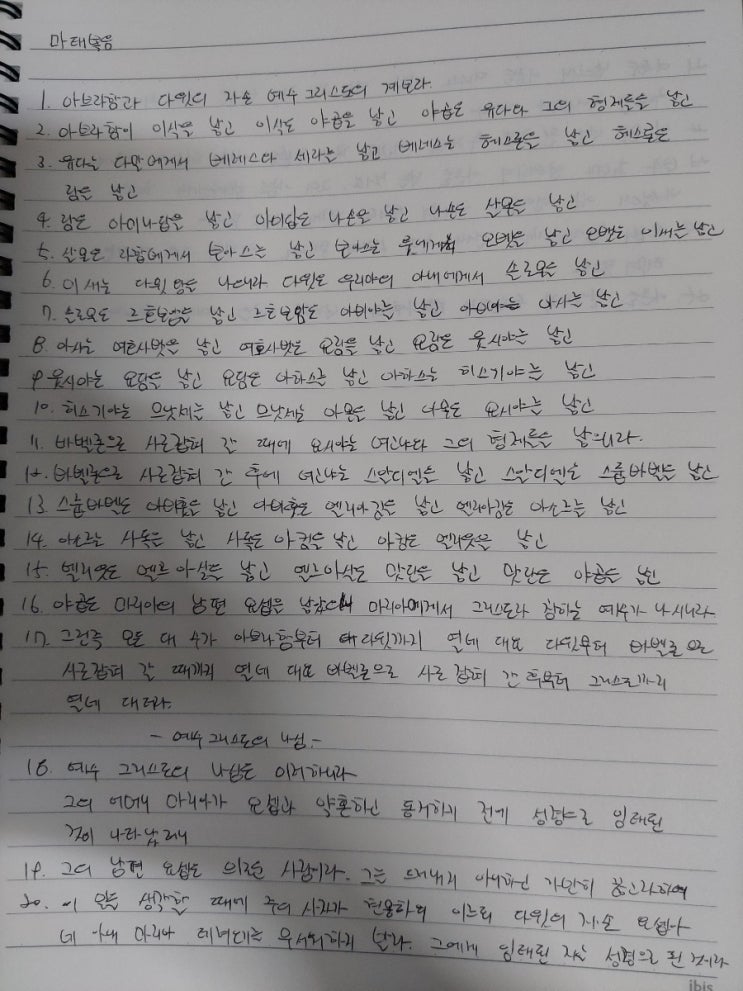 마태복음
1. 아브라함과 다윗의 자손 예수 그리스도의 계보라.
2. 아브라함이 이삭을 낳고 이삭은 야곱을 낳고 야곱은 유다와 그의 형제들을 낳고
3. 유다는 다말에게서 베레스와 세라를 낳고 베레스는 헤스론을 낳고 헤스론은
람을 낳고
4. 람은 아미나답을 낳고 은 나손을 낳고 나손은 살몬을 낳고
5. 살몬은 라합에게서 보아스를 낳고 보아스는 룻에게서 오벳을 낳고 오벳은 이새를 낳고
6. 이새는 다윗 왕을 나니라 다윗은 우리야의 아내에게서 솔로몬을 낳고
7. 솔로몬은 르호보암을 낳고 르호보암은 아비야를 낳고 아비야는 아사를 낳고
8. 아사는 여호사밧을 낳고 여호사밧은 요람을 낳고 요람은 웃시야를 낳고
9. 웃시야는 요담을 낳고 요담은 아하스를 낳고 아하스는 히스기야를 낳고
10. 히스기야는 므낫세를 낳고 므낫세는 아몬을 낳고 아몬은 요시야를 낳고
11. 바벨론으로 사로잡혀 갈 때에 요시야는 여고냐와 그의 형제들을 낳으니라.
12. 바벨론으로 사로잡혀 간 후에 여고냐는 스알디엘을 낳고 스알디엘은 스룹바벨을 낳고
13. 스룹바벨은 아비훗을 낳고 아비훗은 엘리아김을 낳고 엘리아김은 아소르를 낳고
14. 아소르는 사독을 낳고 사독은 아킴을 낳고 아킴은 엘리웃을 낳고
15. 엘리웃은 엘르아살을 낳고 엘르아살은 맛단을 낳고 맛단은 야곱을 낳고
16. 야곱은 마리아의 남편 요셉을 낳았으니 마리아에게서 그리스도라 칭하는 예수가 나시니라
17. 그런즉 모든 대 수가 아브라함부터 다윗까지 열네 대요 다윗부터 바벨론으로
사로잡혀 갈 때까지 열네 대요 바벨론으로 사로잡혀 간 후부터 그리스도까지
열네 대더라.
- 예수 그리스도의 나심 -
18. 예수 그리스도의 나심은 이러하니라
그의 어머니 마리아가 요셉과 약혼하고 동거하기 전에 성령으로 잉태된
것이 나타났더니
19. 그의 남편 요셉은 의로운 사람이라. 그를 드러내지 아니하고 가만히 끊고자하여
20. 이 일을 생각할 때에 주의 사자가 현몽하여 이르되 다윗의 자손 요셉아
네 아내 마리아 데려오기를 무서워하지 말라. 그에게 잉태된 자는 성령으로 된 것이라
ibis